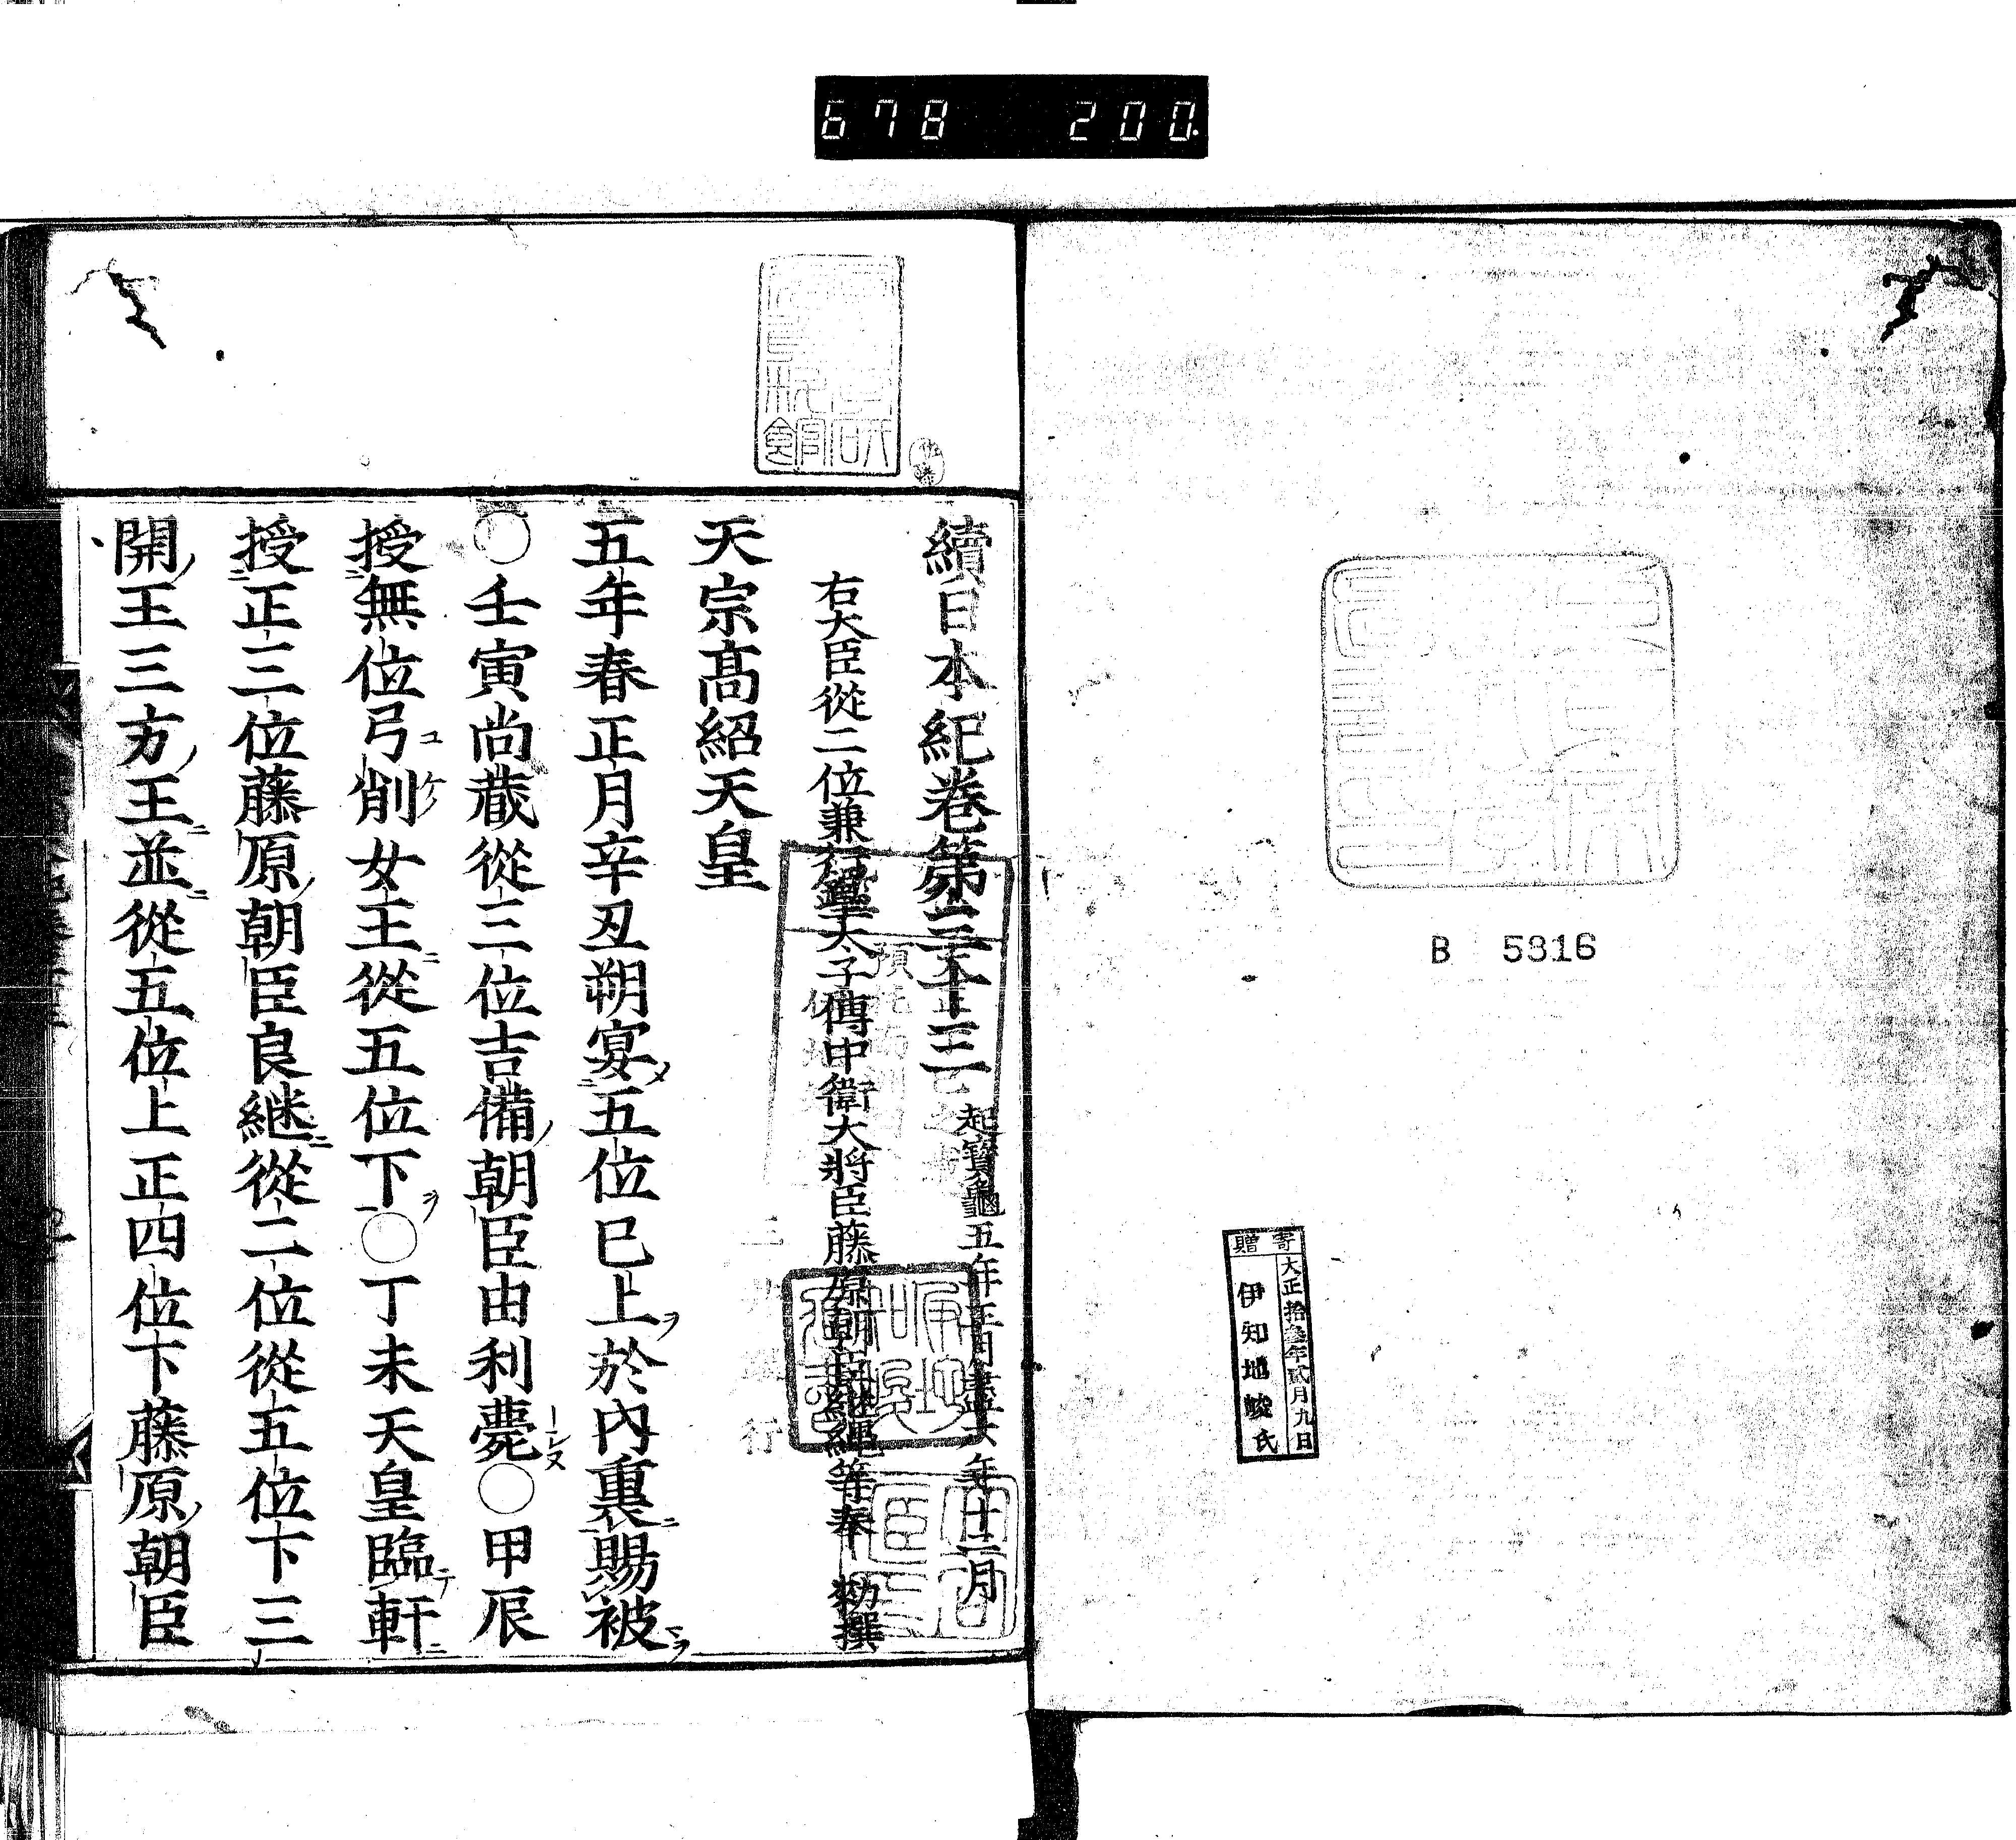 678 200.
B 5816
寄贈
大正拾叁年貮月九日
伊知地峻氏
續日本紀卷第三十三 起寶龜五年正月盡六年十二月
右大臣從二位兼行皇太子傅中衛大將臣藤原朝臣繼繩等奉 勅撰
天宗髙紹天皇
五年春正月辛丑朔宴五位已上於內裏賜被
○壬寅尚藏從三位吉備朝臣由利薨○甲辰
授無位弓削女王從五位下○丁未天皇臨軒
授正三位藤原朝臣良継從二位從五位下三
開王三方王並從五位上正四位下藤原朝臣